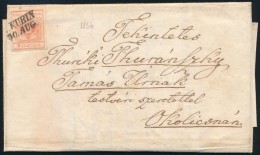 KUBIN
30. AUG.
1854
Tekintetes
Thuróczi Thuránszky
Tamás Urnak
testvéri szeretettel
Okolicsnán